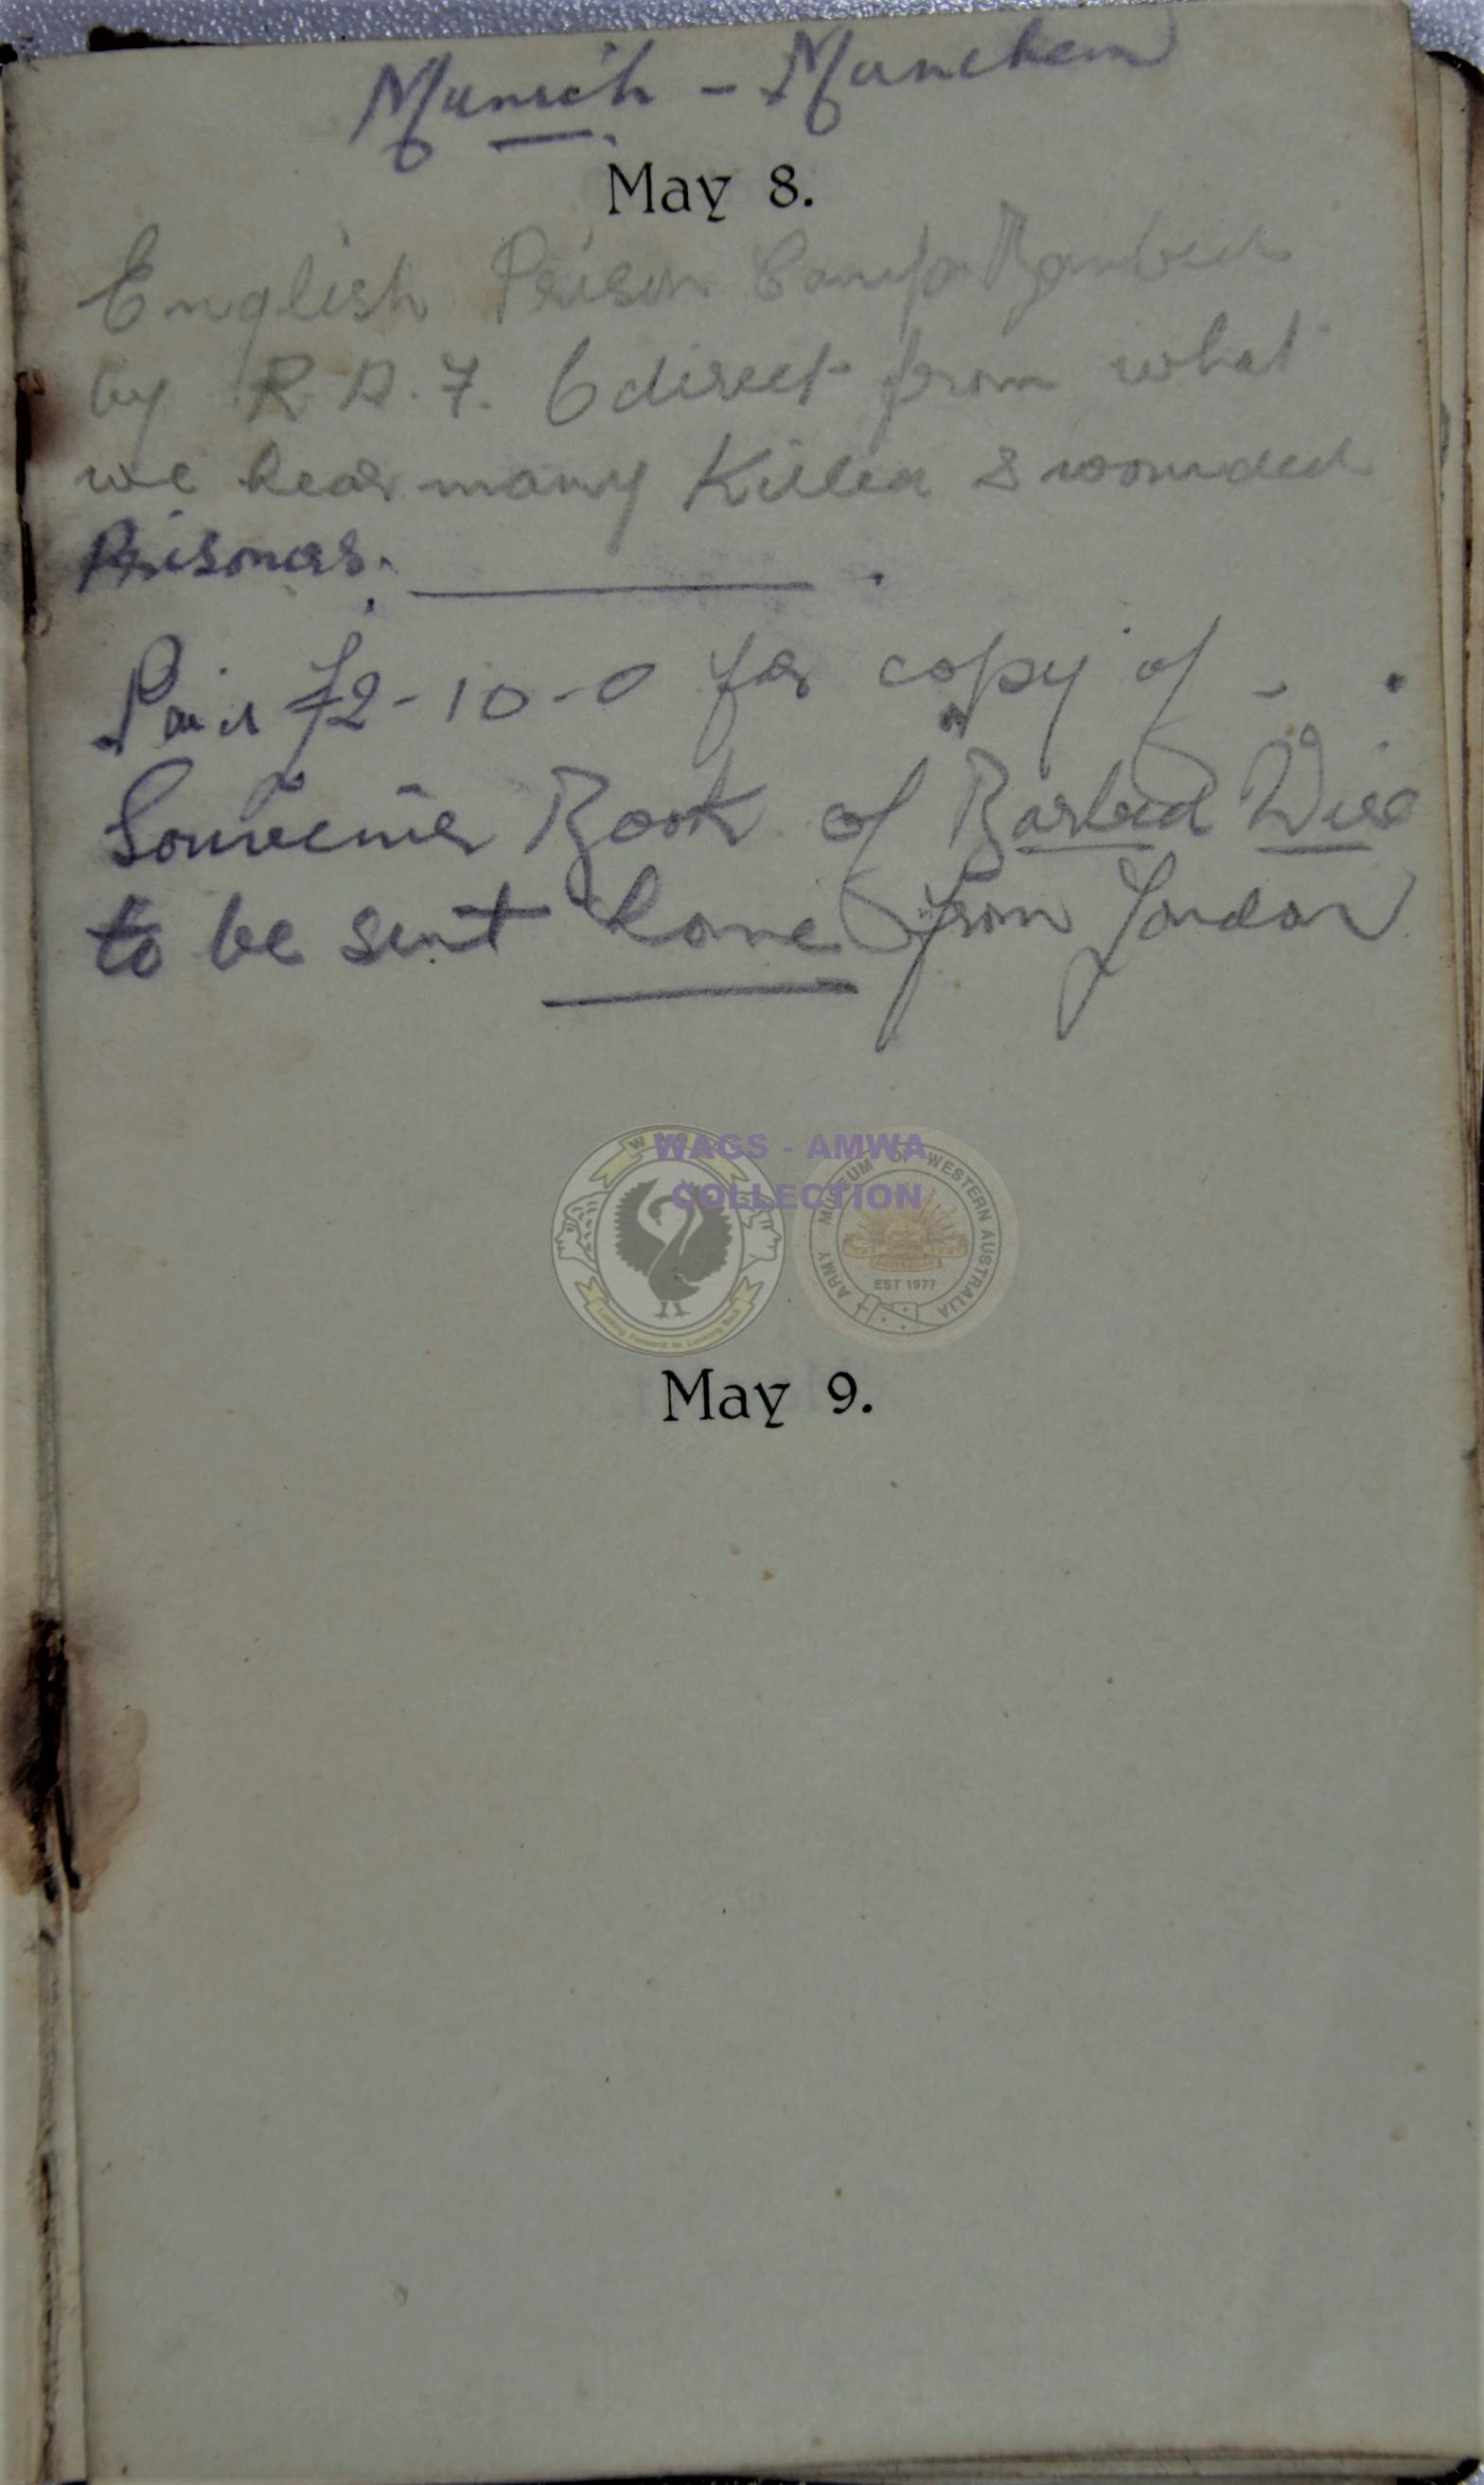 Munich - Munchem
May 8.
English Prison Camp Bombed
by R.A.F. 6 direct from what
we hear many Killed & wounded
Prisoners.
Paid £2-10-0 for copy of -
Souvenir Book of Barbed Wire
to be sent home from London
WAGS - AMWA
COLLECTION
ARMY MUSEUM OF WESTERN AUSTRALIA
AUSTRALIA
EST 1977
Looking Forward to Looking Back
May 9.